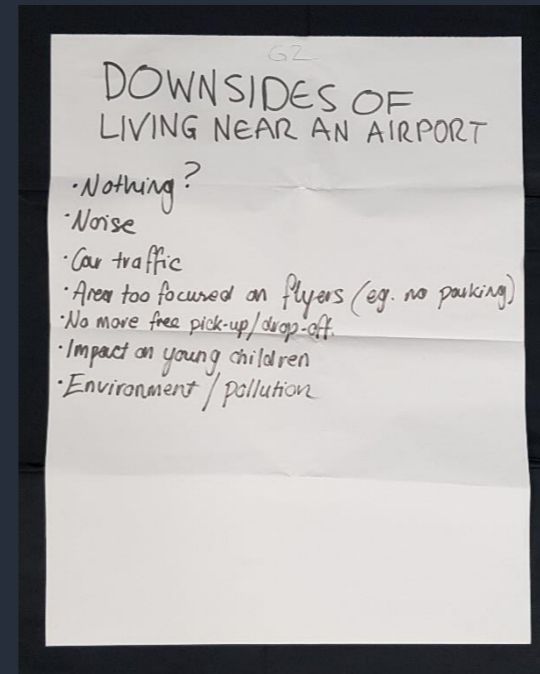 G2
DOWNSIDES OF
LIVING NEAR AN AIRPORT
·Nothing?
·Noise
·Car traffic
·Area too focused on flyers (eg. no parking)
·No more free pick-up/drop-off.
·Impact on young children
·Environment / pollution